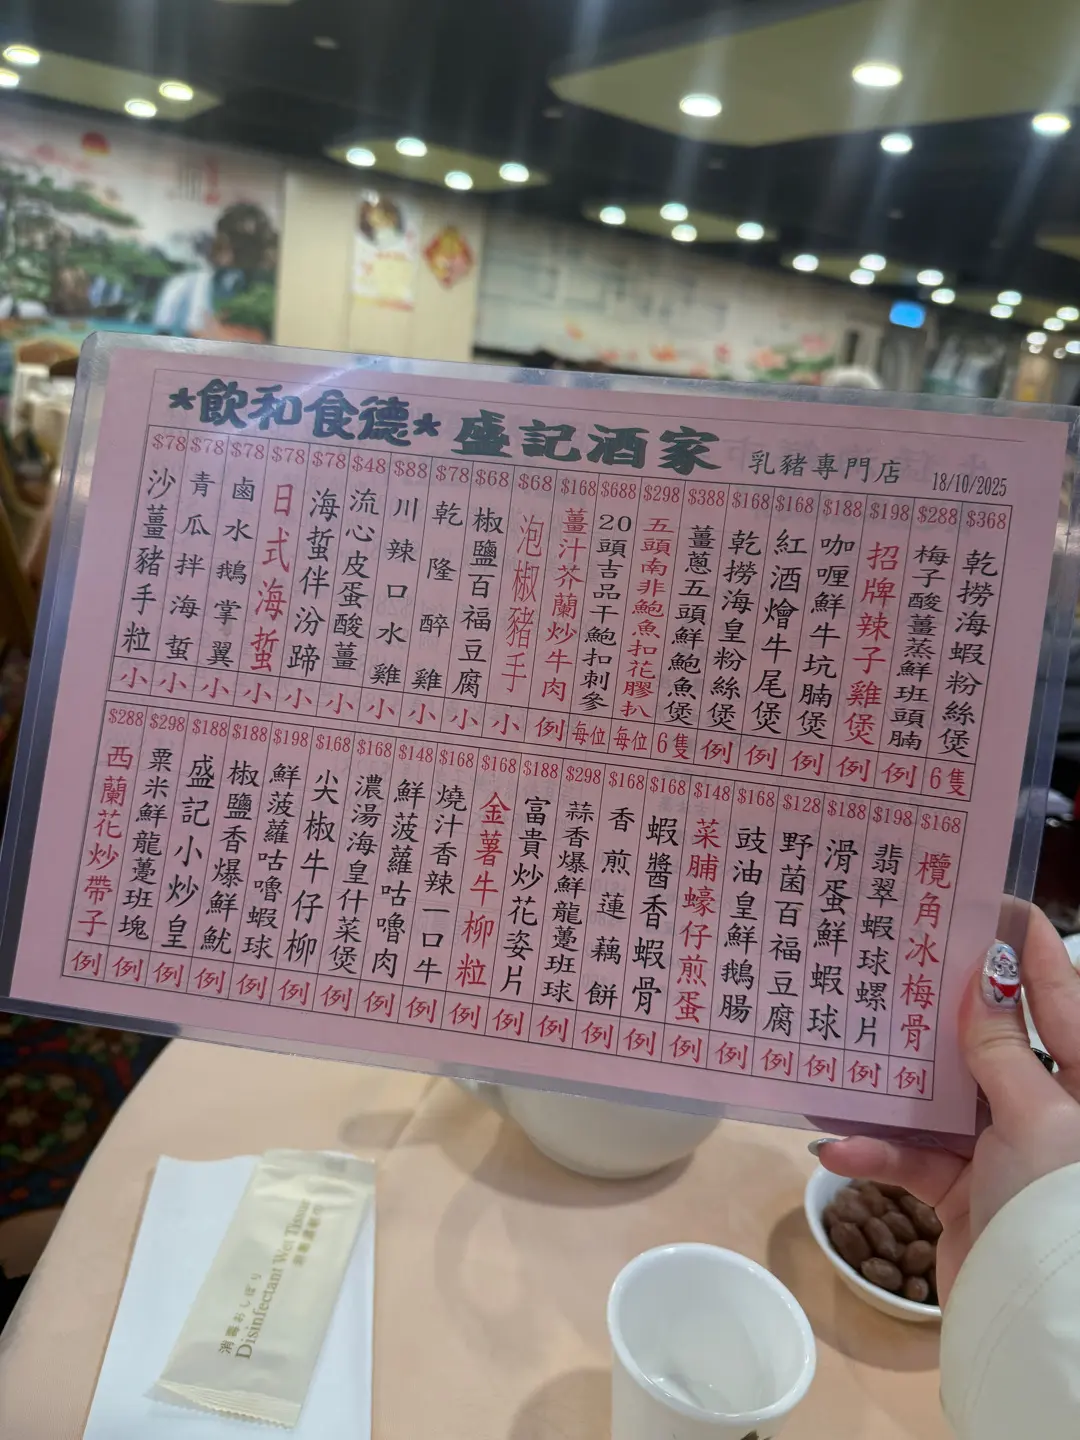 *飲和食德* 盛記酒家 乳豬專門店 18/10/2025
$368 乾撈海蝦粉絲煲 6隻
$288 梅子酸薑蒸鮮班頭腩 例
$198 招牌辣子雞煲 例
$188 咖喱鮮牛坑腩煲 例
$168 紅酒燴牛尾煲 例
$168 乾撈海皇粉絲煲 例
$388 薑蔥五頭鮮鮑魚煲 6隻
$298 五頭南非鮑魚扣花膠扒 每位
$688 20頭吉品干鮑扣刺參 每位
$168 薑汁芥蘭炒牛肉 例
$68 泡椒豬手 小
$68 椒鹽百福豆腐 小
$78 乾隆醉雞 小
$88 川辣口水雞 小
$48 流心皮蛋酸薑 小
$78 海蜇伴汾蹄 小
$78 日式海蜇 小
$78 鹵水鵝掌翼 小
$78 青瓜拌海蜇 小
$78 沙薑豬手粒 小
$168 欖角冰梅骨 例
$198 翡翠蝦球螺片 例
$188 滑蛋鮮蝦球 例
$128 野菌百福豆腐 例
$168 豉油皇鮮鵝腸 例
$148 菜脯蠔仔煎蛋 例
$168 蝦醬香蝦骨 例
$168 香煎蓮藕餅 例
$298 蒜香爆鮮龍躉班球 例
$188 富貴炒花姿片 例
$168 金薯牛柳粒 例
$168 燒汁香辣一口牛 例
$148 鮮菠蘿咕嚕肉 例
$168 濃湯海皇什菜煲 例
$168 尖椒牛仔柳 例
$198 鮮菠蘿咕嚕蝦球 例
$188 椒鹽香爆鮮魷 例
$188 盛記小炒皇 例
$298 粟米鮮龍躉班塊 例
$288 西蘭花炒帶子 例
消毒おしぼり
Disinfectant Wet Tissue
消毒濕紙巾